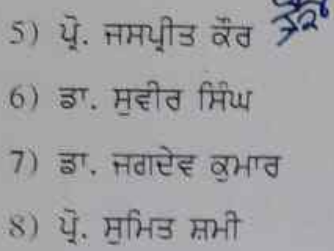 5) ਪ੍ਰੋ. ਜਸਪ੍ਰੀਤ ਕੌਰ
6) ਡਾ. ਸੁਵੀਰ ਸਿੰਘ
7) ਡਾ. ਜਗਦੇਵ ਕੁਮਾਰ
8) ਪ੍ਰੋ. ਸੁਮਿਤ ਸ਼ਮੀ